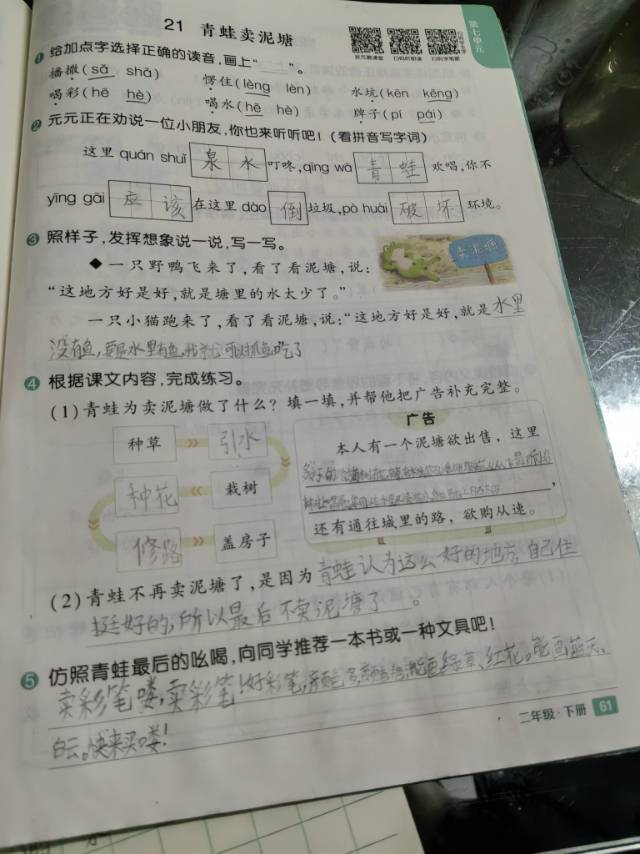 21 青蛙卖泥塘
第七单元
1 给加点字选择正确的读音,画上“____”。
播撒(sǎ shā) 愣住(lèng lèn) 水坑(kēn kēng)
喝彩(hē hè) 喝水(hē hè) 牌子(pí pái)
2 元元正在劝说一位小朋友,你也来听听吧!(看拼音写字词)
这里 quán shuǐ 泉水 叮咚,qīng wā 青蛙 欢唱,你不
yīng gāi 应该 在这里 dào 倒 垃圾,pò huài 破坏 环境。
3 照样子,发挥想象说一说,写一写。
卖泥塘
◆一只野鸭飞来了,看了看泥塘,说:
“这地方好是好,就是塘里的水太少了。”
一只小猫跑来了,看了看泥塘,说:“这地方好是好,就是水里
没有鱼,要是水里有鱼,我就可以抓鱼吃了
4 根据课文内容,完成练习。
(1)青蛙为卖泥塘做了什么?填一填,并帮他把广告补充完整。
种草 引水
种花 栽树
修路 盖房子
广告
本人有一个泥塘欲出售,这里
,
还有通往城里的路,欲购从速。
(2)青蛙不再卖泥塘了,是因为青蛙认为这么好的地方自己住
挺好的,所以最后不卖泥塘了。
5 仿照青蛙最后的吆喝,向同学推荐一本书或一种文具吧!
卖彩笔喽,卖彩笔!好彩笔,颜色多,能画绿草、红花。能画蓝天、
白云。快来买喽!
二年级·下册 61